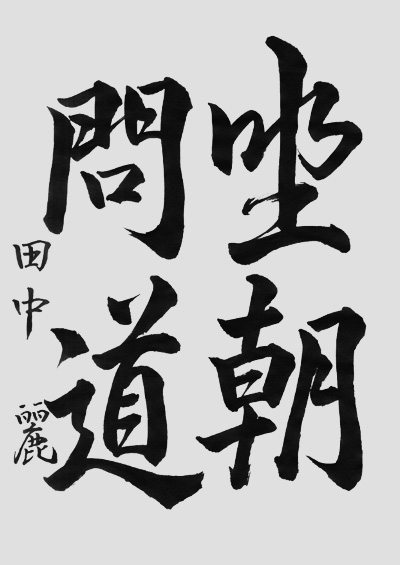 坐朝
問道
田中
麗